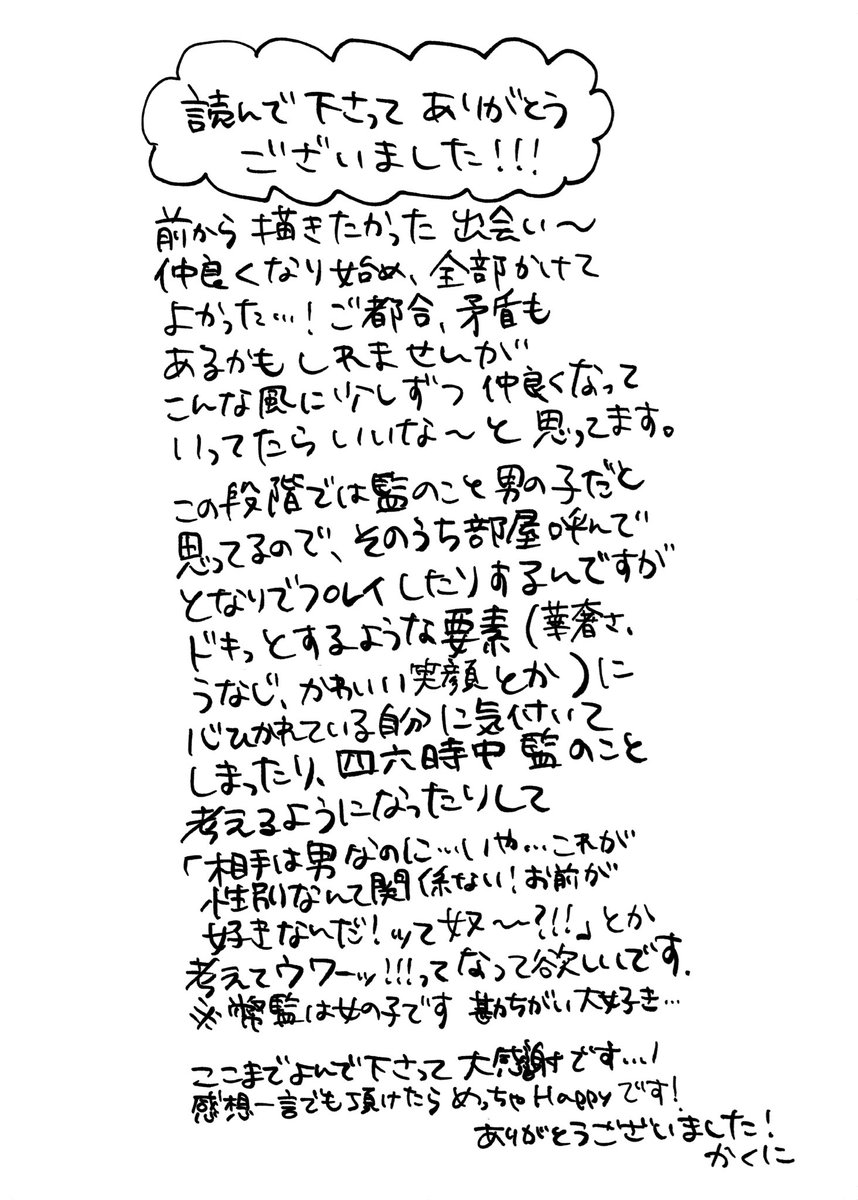 読んで下さって ありがとう
ございました!!!
前から 描きたかった 出会い〜
仲良くなり始め、全部かけて
よかった…! ご都合、矛盾も
あるかもしれませんが
こんな風に少しずつ 仲良くなって
いってたら いいな〜と 思ってます。
この段階では監のこと男の子だと
思ってるので、そのうち部屋呼んで
となりでプレイしたりするんですが
ドキっとするような要素(華奢さ、
うなじ、かわいい笑顔とか)に
心ひかれている自分に気付いて
しまったり、四六時中 監のこと
考えるようになったりして
「相手は男なのに…いや…これが
性別なんて関係ない!お前が
好きなんだ!ッて奴〜?!!!」とか
考えてウワーッ!!!ってなって欲しいです.
※弊監は女の子です 勘ちがい大好き…
ここまでよんで下さって 大感謝です…!
感想一言でも頂けたら めっちゃHappyです!
ありがとうございました!
かくに